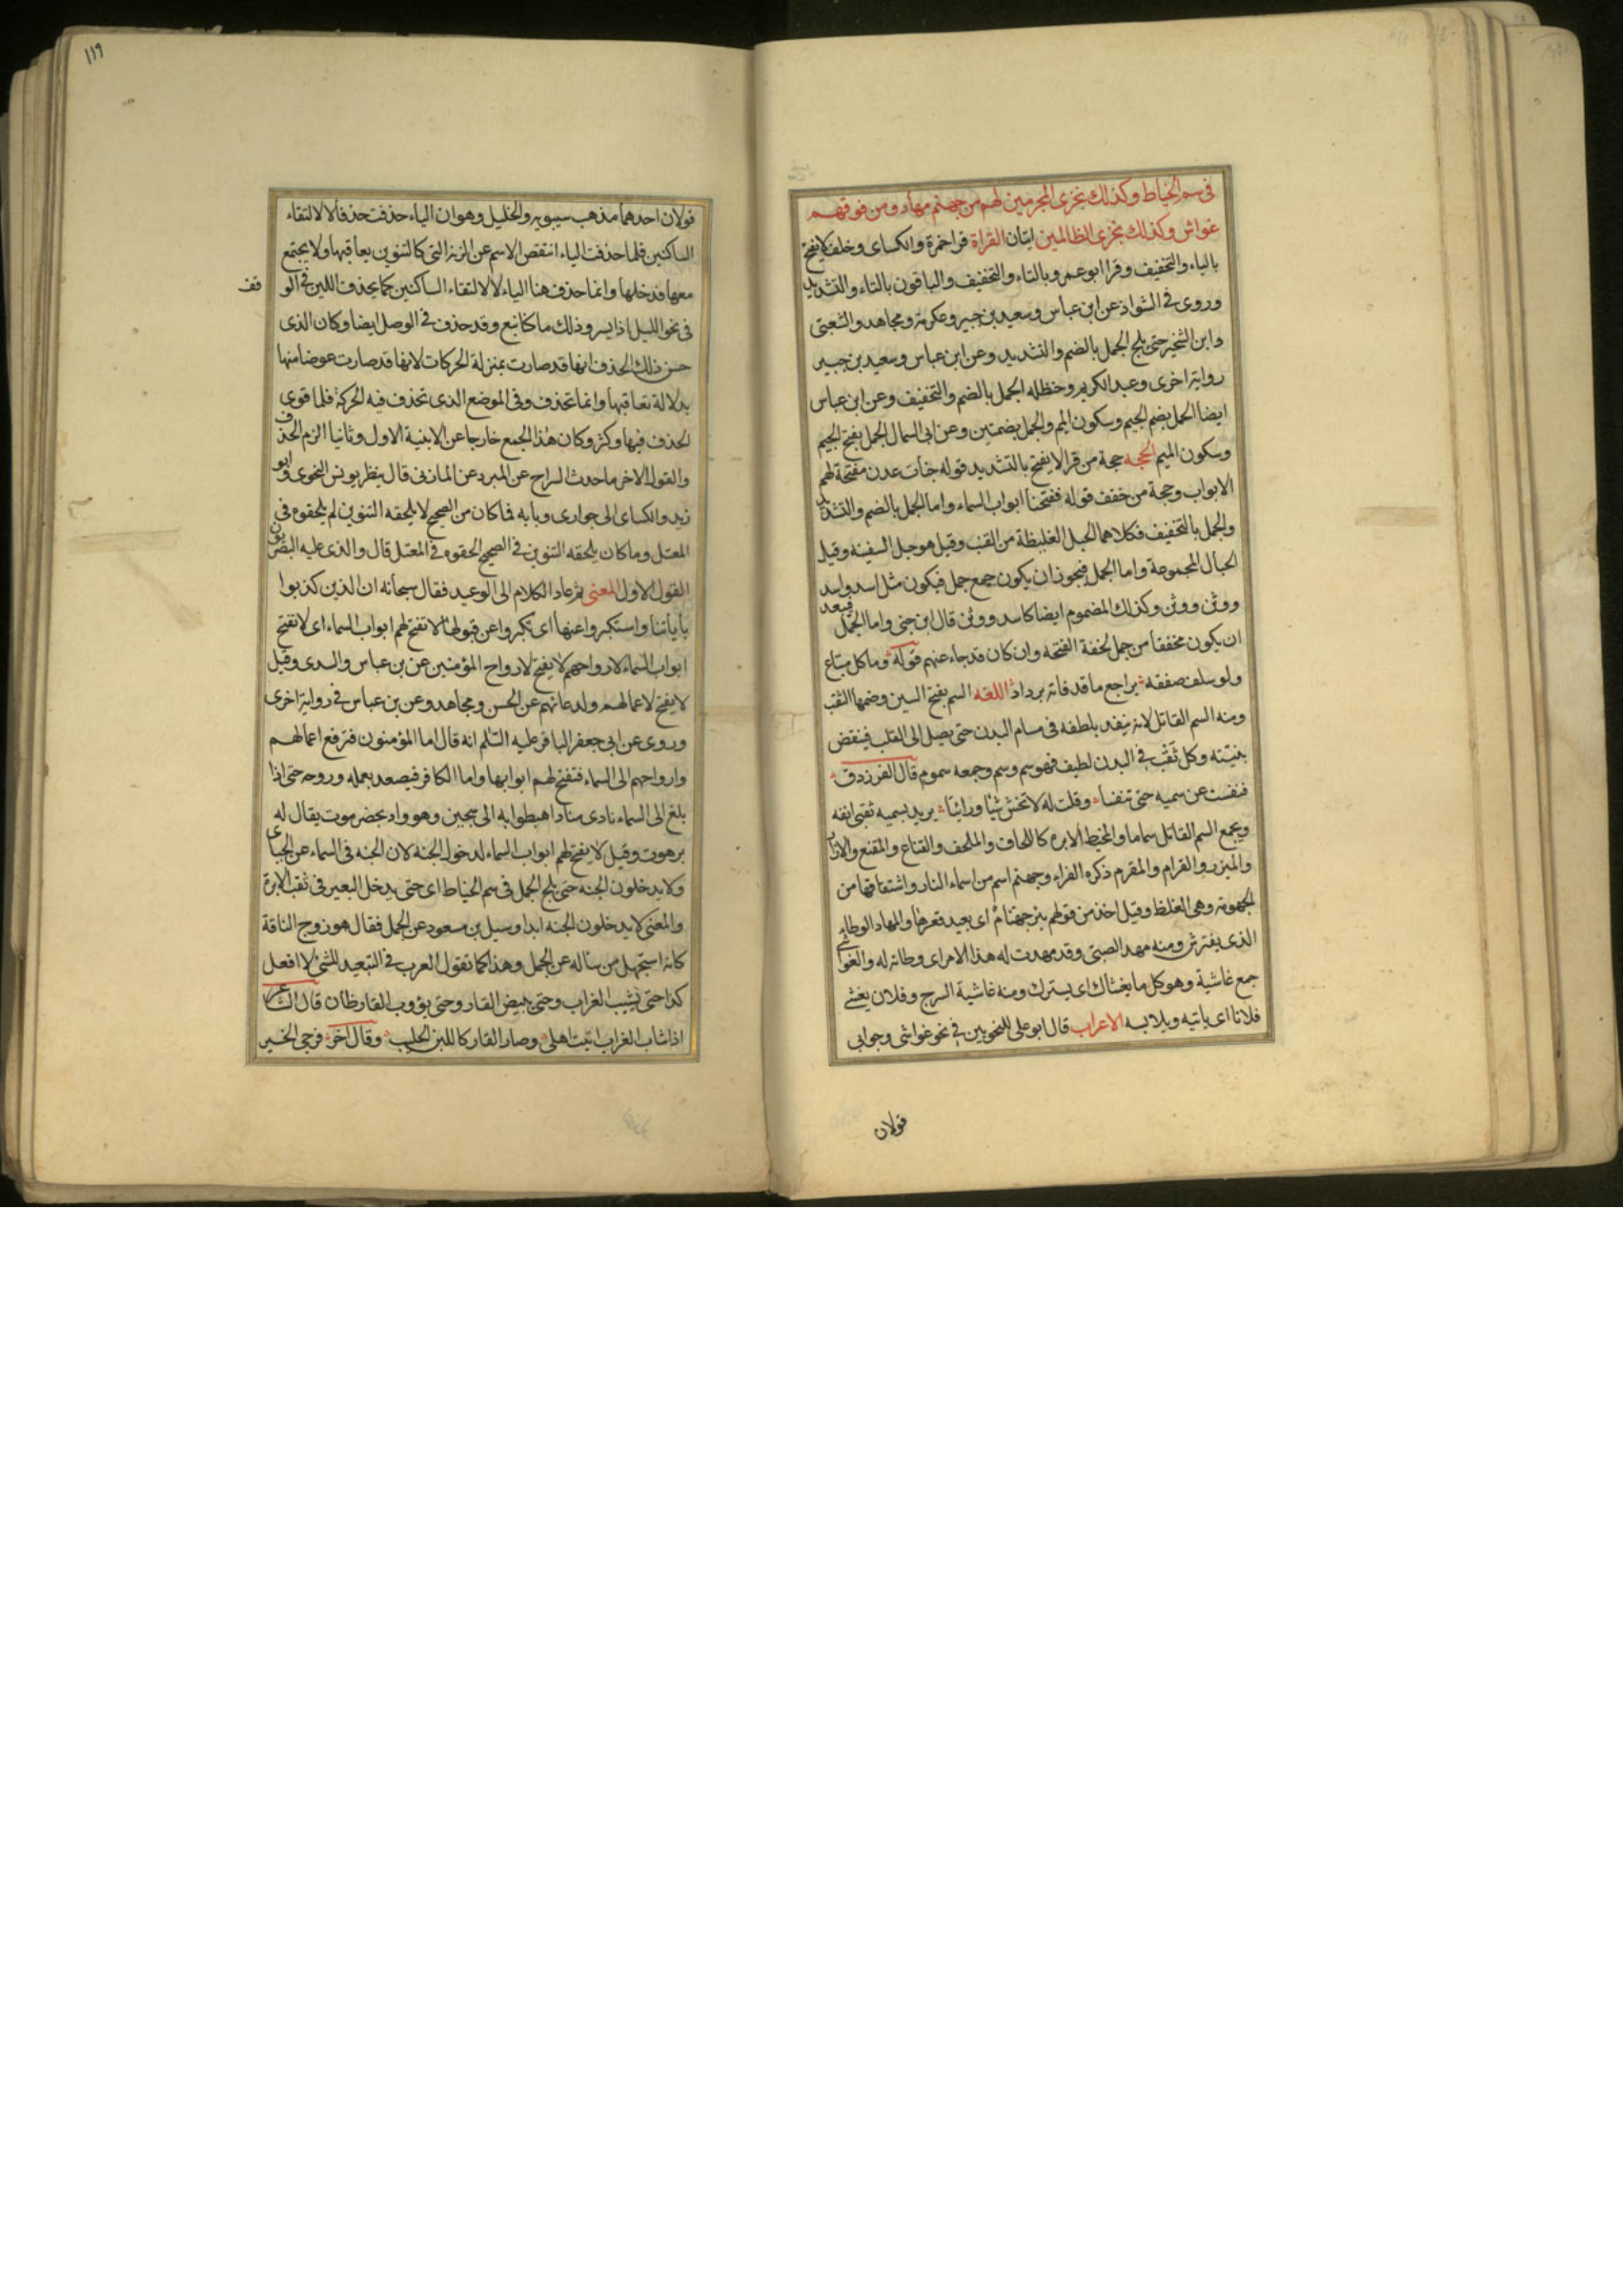 فى سم الخياط وكذلك نجزى المجرمين لهم من جهنم مهاد ومن فوقهم
غواش وكذلك نجزى الظالمين ايتان القراة قرا حمزة والكساى وخلف لا يفتح
بالياء والتخفيف وقرا ابو عمرو بالتاء والتخفيف والباقون بالتاء والتشديد
وروى فى الشواذ عن ابن عباس وسعيد بن جبير وعكرمة ومجاهد والشعبى
وابن الشخير حتى يلج الجمل بالضم والتشديد وعن ابن عباس وسعيد بن جبير
رواية اخرى وعبد الكريم وحنظله الجمل بالضم والتخفيف وعن ابن عباس
ايضا الجمل بضم الجيم وسكون الميم والجمل بضمتين وعن ابى السمال الجمل بفتح الجيم
وسكون الميم الحجه حجة من قرا لا يفتح بالتشديد قوله جنات عدن مفتحة لهم
الابواب وحجة من خفف قوله ففتحنا ابواب السماء واما الجمل بالضم والتشديد
والجمل بالتخفيف فكلاهما الحبل الغليظة من القنب وقيل هو حبل السفينه وقيل
الحبال المجموعة واما الجمل فيجوز ان يكون جمع جمل فيكون مثل اسد واسد
ووثن ووثن وكذلك المضموم ايضا كاسد ووثن قال ابن جنى واما الجمل فبعد
ان يكون مخففا من جمل لخفة الفتحه وان كان قد جاء عنهم قوله وما كل مبتاع
ولو سلف صفقه يراجع ما قد فاته برداد اللغه السم بفتح السين وضمها الثقب
ومنه السم القاتل لانه ينفد بلطفه فى مسام البدن حتى يصل الى القلب فينقض
بنيته وكل ثقب فى البدن لطيف فهو سم وسم وجمعه سموم قال الفرزدق
فنفست عن سميه حتى تنفسا وقلت له لا تخش شيا ورائيا يريد بسميه ثقبى انفه
ويجمع السم القاتل سماما والمخيط الابره كاللحاف والملحف والقناع والمقنع والازار
والميزر والقرام والمقرم ذكره الفراء وجهنم اسم من اسماء النار واشتقاقها من
الجهومة وهى الغلظ وقيل اخذ من قولهم بئر جهنام اى بعيد قعرها والمهاد الوطاء
الذى يفترش ومنه مهد الصبى وقد مهدت له هذا الامر اى وطاته له والغواشى
جمع غاشية وهو كل ما يغشاك اى يسترك ومنه غاشية السرج وفلان يغشى
فلانا اى ياتيه ويلابسه الاعراب قال ابو على للنحويين فى نحو غواشى وجوارى
قولان
١١٩
قولان احدهما مذهب سيبويه والخليل وهو ان الياء حذفت حذفا لا لالتقاء
الساكنين فلما حذفت الياء انتقص الاسم عن الزنة التى كا التنوين يعاقبها ولا يجتمع
معها فدخلها وانما حذف هنا الياء لا لالتقاء الساكنين كما يحذف اللين فى الو
قف
فى نحو الليل اذا يسر وذلك ما كنا نبغ وقد حذف فى الوصل ايضا وكان الذى
حسن ذلك الحذف انها قد صارت بمنزلة الحركات لانها قد صارت عوضا منها
بدلالة تعاقبها وانما تحذف وفى الموضع الذى تحذف فيه الحركة فلما قوى
الحذف فيها وكثر وكان هذا الجمع خارجا عن الابنية الاول وثانيا الزم الحذف
والقول الاخر ما حدث السراج عن المبرد عن المازنى قال ينظر يونس النحوى وابو
زيد والكساى الى جوارى وبابه فما كان من الصحيح لا يلحقه التنوين لم يلحقوه فى
المعتل وما كان يلحقه التنوين فى الصحيح الحقوه فى المعتل قال والذى عليه البصريون
القول الاول المعنى ثم عاد الكلام الى الوعيد فقال سبحانه ان الذين كذبوا
باياتنا واستكبروا عنها اى تكبروا عن قبولها لا تفتح لهم ابواب السماء اى لا تفتح
ابواب السماء لارواحهم كا يفتح لارواح المؤمنين عن بن عباس والسدى وقيل
لا يفتح لاعمالهم ولدعائهم عن الحسن ومجاهد وعن بن عباس فى رواية اخرى
وروى عن ابى جعفر الباقر عليه السلم انه قال اما المؤمنون فترفع اعمالهم
وارواحهم الى السماء فتفتح لهم ابوابها واما الكافر فيصعد بعمله وروحه حتى اذا
بلغ الى السماء نادى مناد اهبطوا به الى سجين وهو واد بحضرموت يقال له
برهوت وقيل لا يفتح لهم ابواب السماء لدخول الجنه لان الجنه فى السماء عن الجباى
ولا يدخلون الجنه حتى يلج الجمل فى سم الخياط اى حتى يدخل البعير فى ثقب الابرة
والمعنى لا يدخلون الجنه ابدا وسيل بن مسعود عن الجمل فقال هو زوج الناقة
كانه استجهل من ساله عن الجمل وهذا كما تقول العرب فى التبعيد للشئ لا افعل
كذا حتى يشيب الغراب وحتى يبيض القار وحتى يؤوب القارظان قال الشاعر
اذا شاب الغراب اتيت اهلى وصار القار كاللبن الحليب وقال اخر فرجى الخير